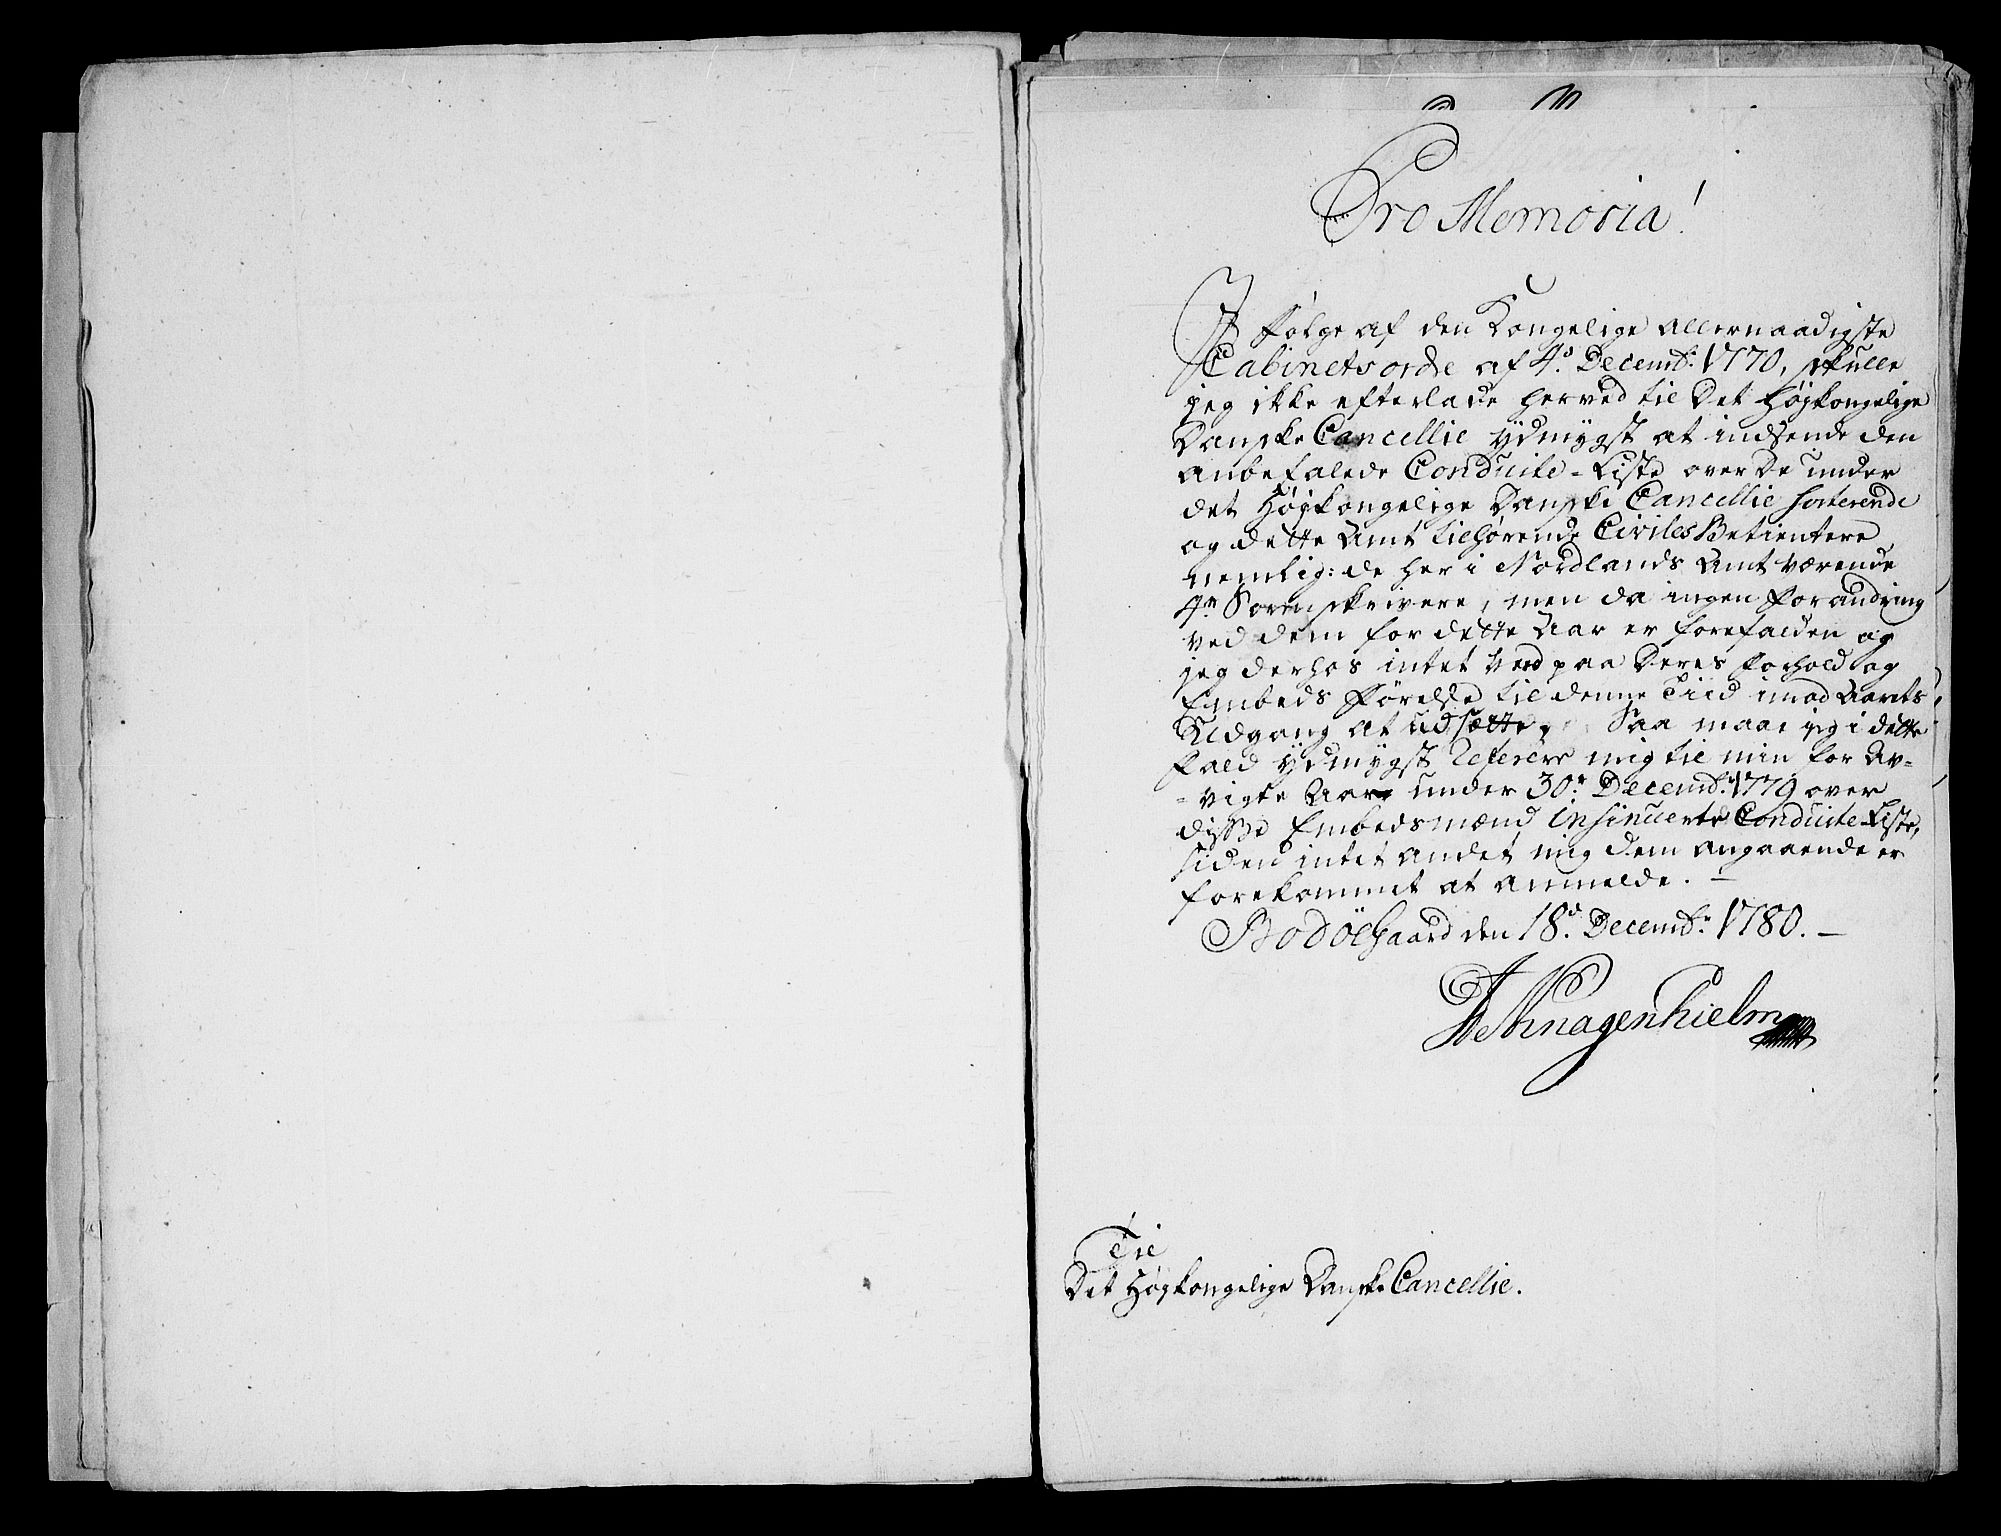 Pro Memoria!
I følge af den Kongelige allernaadigste
Cabinets orde af 4.d Decembr. 1770, skulle
jeg ikke efterlade herved til Det Høykongelige
Danske Cancellie ydmygst at indsende den
anbefalede Conduite-Liste over De under
det Høykongelige Danske Cancellie sorterende
og dette Amt tilhørende Civiles Betientere
nemlig: de her i Nordlands Amt værende
4re Sorenskrivere, men da ingen forandring
ved dem for dette Aar er forefalden og
jeg derhos intet veed paa Deres forhold og
Embeds førelse til denne Tiid imod Aarets
Udgang at udsætte, Saa maae jeg i dette
fald ydmygst referere mig til min for Av-
-vigte Aar under 30.te Decembr. 1779 over
disse Embedsmænd insinuerte Conduite-Liste,
siden intet andet mig dem angaaende er
forekommet at anmelde. –
Bodøegaard den 18.d Decembr. 1780. –
Knagenhielm
Til
Det Høykongelige Danske Cancellie.